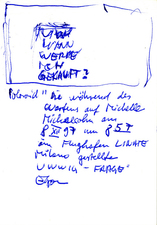 WANN
WERDE
ICH
GEKAUFT?
Polaroid "Die während des
Wartens auf Michelle
Nicholsohn am
8 XII 97 um 8 57
im Flughafen LINATE
Milano gestellte
UNNNA - FRAGE"